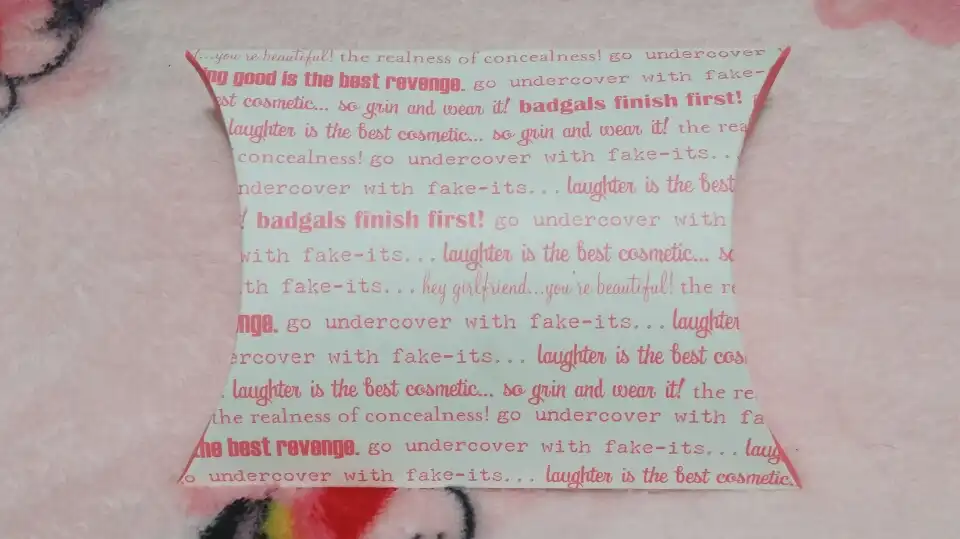 ...you're beautiful! the realness of concealness! go undercover
ng good is the best revenge. go undercover with fake-
st cosmetic... so grin and wear it! badgals finish first!
laughter is the best cosmetic... so grin and wear it! the rea
concealness! go undercover with fake-its..
ndercover with fake-its... laughter is the best
! badgals finish first! go undercover with
with fake-its... laughter is the best cosmetic... so
th fake-its... hey girlfriend...you're beautiful! the re
nge. go undercover with fake-its... laughter
ercover with fake-its... laughter is the best cos
. laughter is the best cosmetic... so grin and wear it! the re
the realness of concealness! go undercover with fa
he best revenge. go undercover with fake-its... laug
o undercover with fake-its... laughter is the best cosmetic.